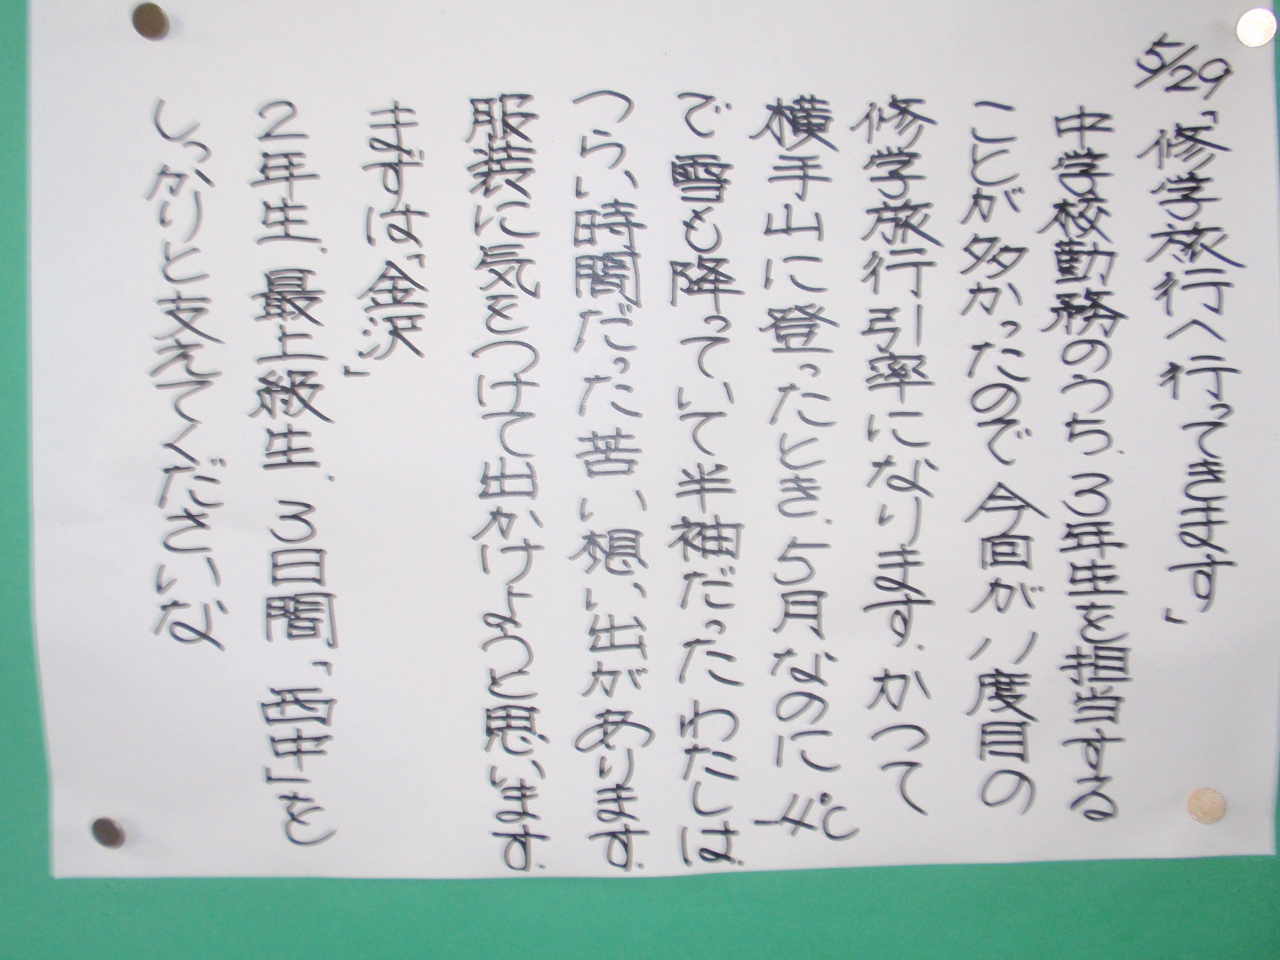 5/29「修学旅行へ行ってきます」
中学校勤務のうち、3年生を担当する
ことが多かったので今回が八度目の
修学旅行引率になります。かつて
横手山に登ったとき、5月なのに-4℃
で雪も降っていて半袖だったわたしは
つらい時間だった苦い想い出があります。
服装に気をつけて出かけようと思います。
まずは「金沢」
2年生、最上級生、3日間、「西中」を
しっかりと支えてくださいな